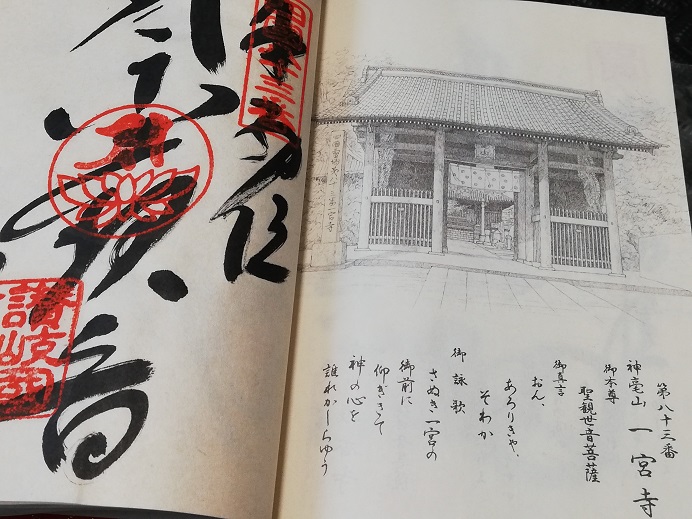 第八十三番
神毫山 一宮寺
御本尊
聖観世音菩薩
御真言
おん、
あろりきや、
そわか
御詠歌
さぬき一宮の
御前に
仰ぎきて
神の心を
誰れかしらゆう
一宮寺
讃岐
音